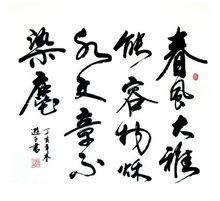 春風大雅
能容物秋
水文章不
染塵
丁亥年冬